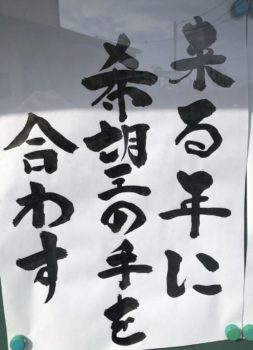 来る年に
希望の手を
合わす